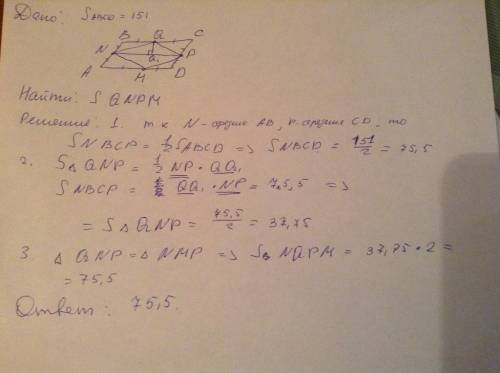 Дано: S ABCD = 151
B Q C
N Q₁ P
A M D
Найти: S QNPM
Решение: 1. т к N - средине AB, P - средине CD, то
S NBCP = 1/2 S ABCD => S NBCD = 151/2 = 75,5
2. S△QNP = 1/2 NP · QQ₁
S NBCP = QQ₁ · NP = 75,5 =>
= S△QNP = 75,5/2 = 37,75
3 △QNP = △NMP => S NQPM = 37,75 · 2 =
= 75,5
Ответ: 75,5.